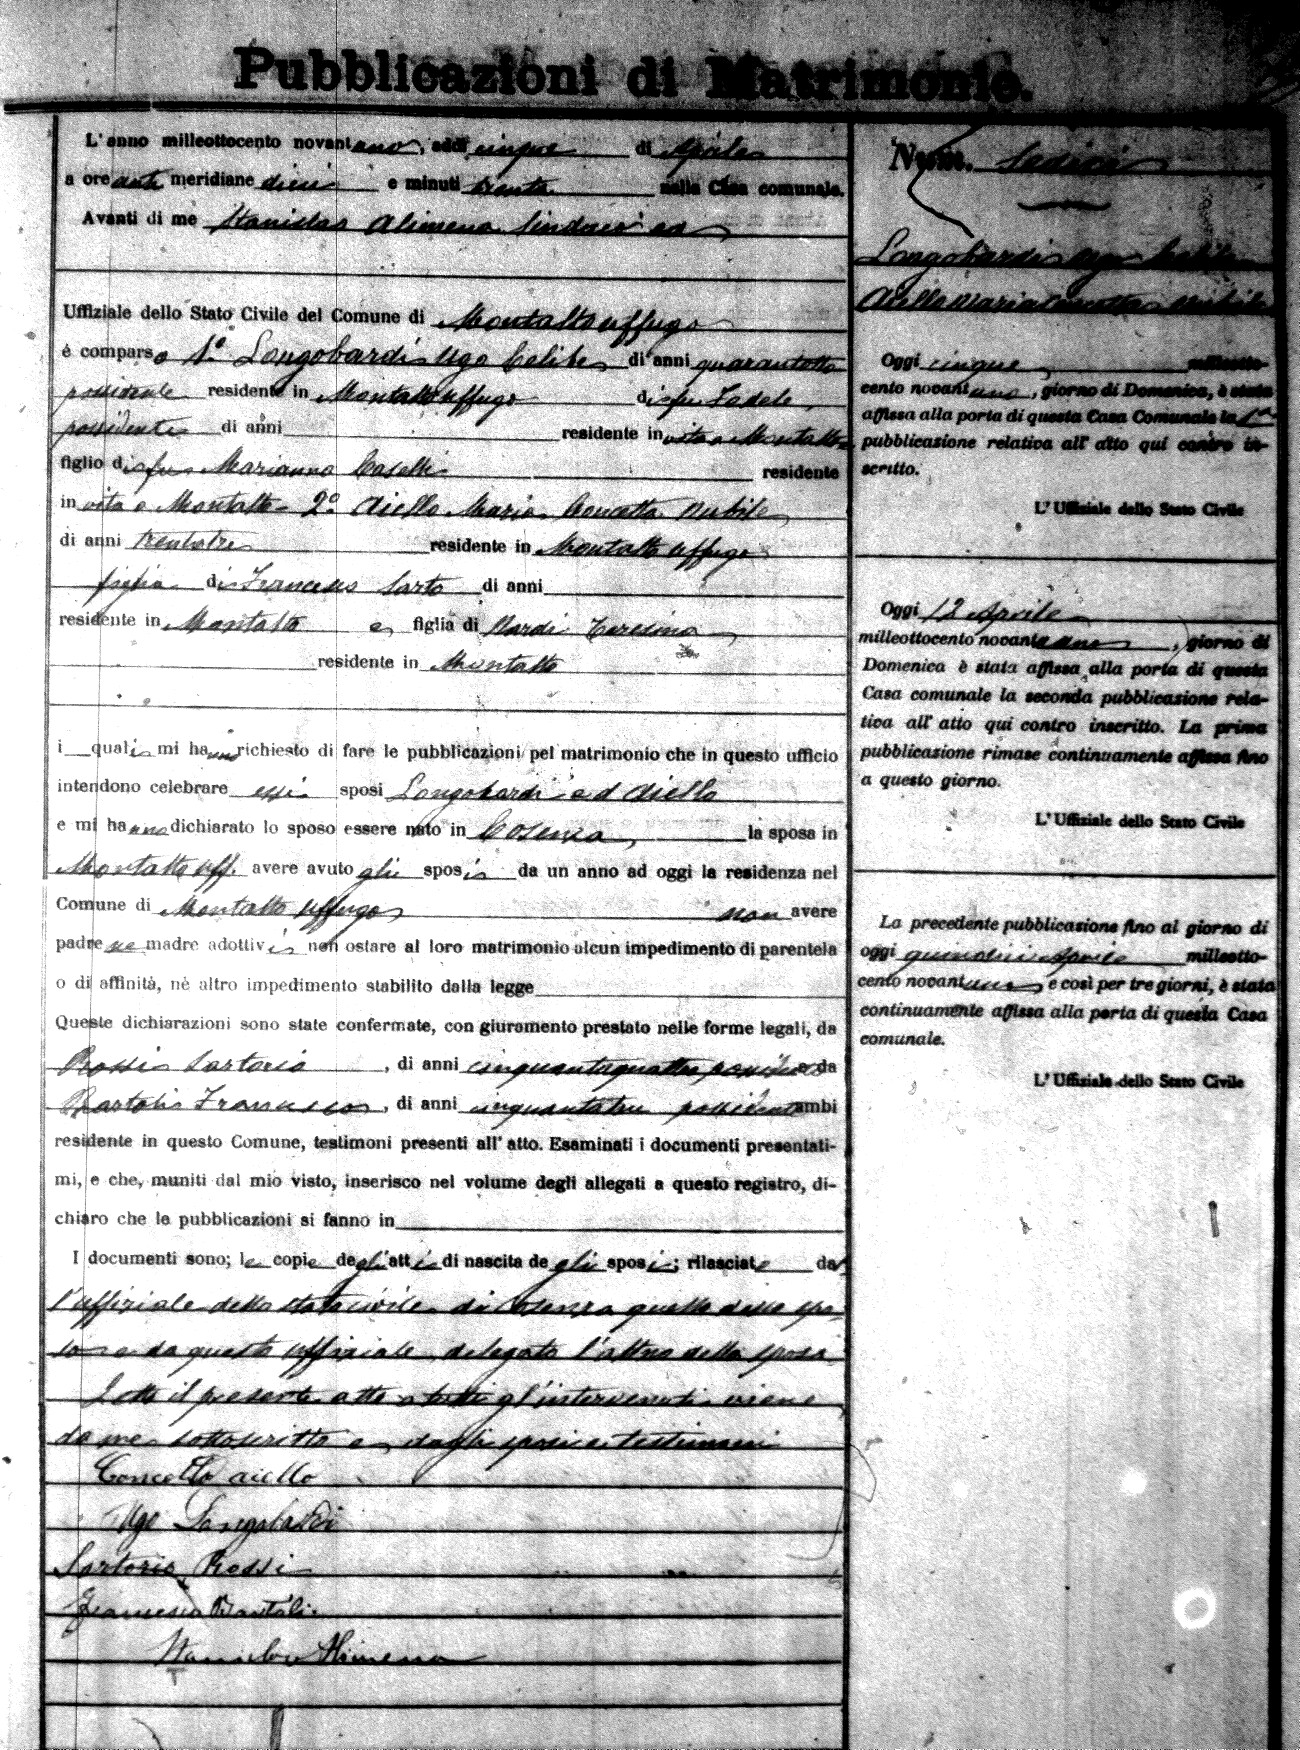 Pubblicazioni di Matrimonio.
L'anno milleottocento novantuno, addì cinque di Aprile
a ore anti meridiane dieci e minuti trenta nella Casa comunale.
Avanti di me Stanislao Alimena Sindaco ed
Uffiziale dello Stato Civile del Comune di Montalto Uffugo
è comparso 1º Longobardi Ugo Celibe di anni quarantotto
possidente residente in Montalto Uffugo di fu Fedele
possidente di anni residente in vita a Montalto
figlio di fu Marianna Caselli residente
in vita a Montalto 2º Aiello Maria Concetta Nubile
di anni trentatre residente in Montalto Uffugo
figlia di Francesco Sarto di anni
residente in Montalto e figlia di Nardi Teresina
residente in Montalto
i quali mi hanno richiesto di fare le pubblicazioni pel matrimonio che in questo ufficio
intendono celebrare essi sposi Longobardi ed Aiello
e mi hanno dichiarato lo sposo essere nato in Cosenza, la sposa in
Montalto Uff. avere avuto gli sposi da un anno ad oggi la residenza nel
Comune di Montalto Uffugo non avere
padre ne madre adottivi non ostare al loro matrimonio alcun impedimento di parentela
o di affinità, nè altro impedimento stabilito dalla legge
Queste dichiarazioni sono state confermate, con giuramento prestato nelle forme legali, da
Rossi Sartorio, di anni cinquantaquattro, e da
Bartoli Francesco, di anni cinquantatre possidenti ambi
residente in questo Comune, testimoni presenti all'atto. Esaminati i documenti presentati-
mi, e che, muniti dal mio visto, inserisco nel volume degli allegati a questo registro, di-
chiaro che le pubblicazioni si fanno in
I documenti sono; le copie degli atti di nascita de gli sposi; rilasciate dal
l'uffiziale dello stato civile di Cosenza quello dello spo-
so e da questo uffiziale delegato l'altro della sposa.
Letto il presente atto a tutti gl'intervenuti viene
da me sottoscritto e dagli sposi e testimoni
Concetta aiello
Ugo Longobardi
Sartorio Rossi
Francesco Bartoli
Stanislao Alimena
Num. Sedici
Longobardi Ugo Celibe
Aiello Maria Concetta Nubile
Oggi cinque milleotto-
cento novantuno, giorno di Domenica, è stata
affissa alla porta di questa Casa Comunale la 1ª
pubblicazione relativa all'atto qui contro in-
scritto.
L'Uffiziale dello Stato Civile
Oggi 12 Aprile
milleottocento novantuno, giorno di
Domenica è stata affissa alla porta di questa
Casa comunale la seconda pubblicazione rela-
tiva all'atto qui contro inscritto. La prima
pubblicazione rimase continuamente affissa fino
a questo giorno.
L'Uffiziale dello Stato Civile
La precedente pubblicazione fino al giorno di
oggi quindici Aprile milleotto-
cento novantuno e così per tre giorni, è stata
continuamente affissa alla porta di questa Casa
comunale.
L'Uffiziale dello Stato Civile